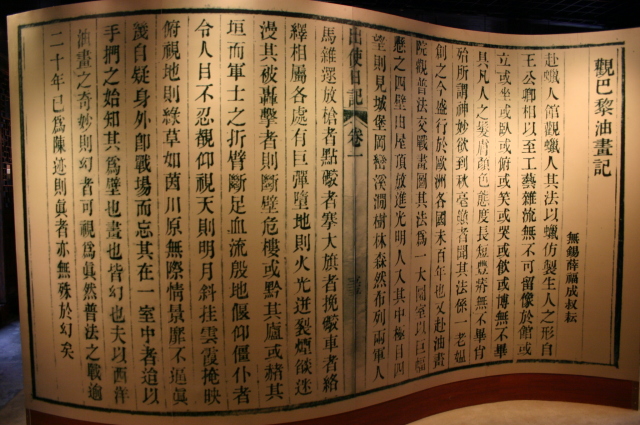 觀巴黎油畫記
無錫薛福成叔耘
赴蠟人館觀蠟人其法以蠟仿製生人之形自
王公卿相以至工藝雜流無不可留像於館或
立或坐或臥或俯或笑或哭或飲或博無不畢
具凡人之髮膚顏色態度長短豐瘠無不畢肖
殆所謂神妙欲到秋毫巔者聞其法係一老媼
創之今盛行於歐洲各國未百年也又赴油畫
院觀普法交戰畫圖其法爲一大圜室以巨幅
懸之四壁由屋頂放進光明人入其中極目四
望則見城堡岡巒溪澗樹林森然布列兩軍人
出使日記 卷一
馬雜遝放槍者點礮者搴大旗者挽礮車者絡
繹相屬各處有巨彈墮地則火光迸裂煙燄迷
漫其被轟擊者則斷壁危樓或黔其廬或赭其
垣而軍士之折臂斷足血流殷地偃仰僵仆者
令人目不忍覩仰視天則明月斜挂雲霞掩映
俯視地則綠草如茵川原無際情景靡不逼眞
幾自疑身外卽戰場而忘其在一室中者迨以
手捫之始知其爲壁也畫也皆幻也夫以西洋
油畫之奇妙則幻者可視爲眞然普法之戰逾
二十年已爲陳迹則眞者亦無殊於幻矣